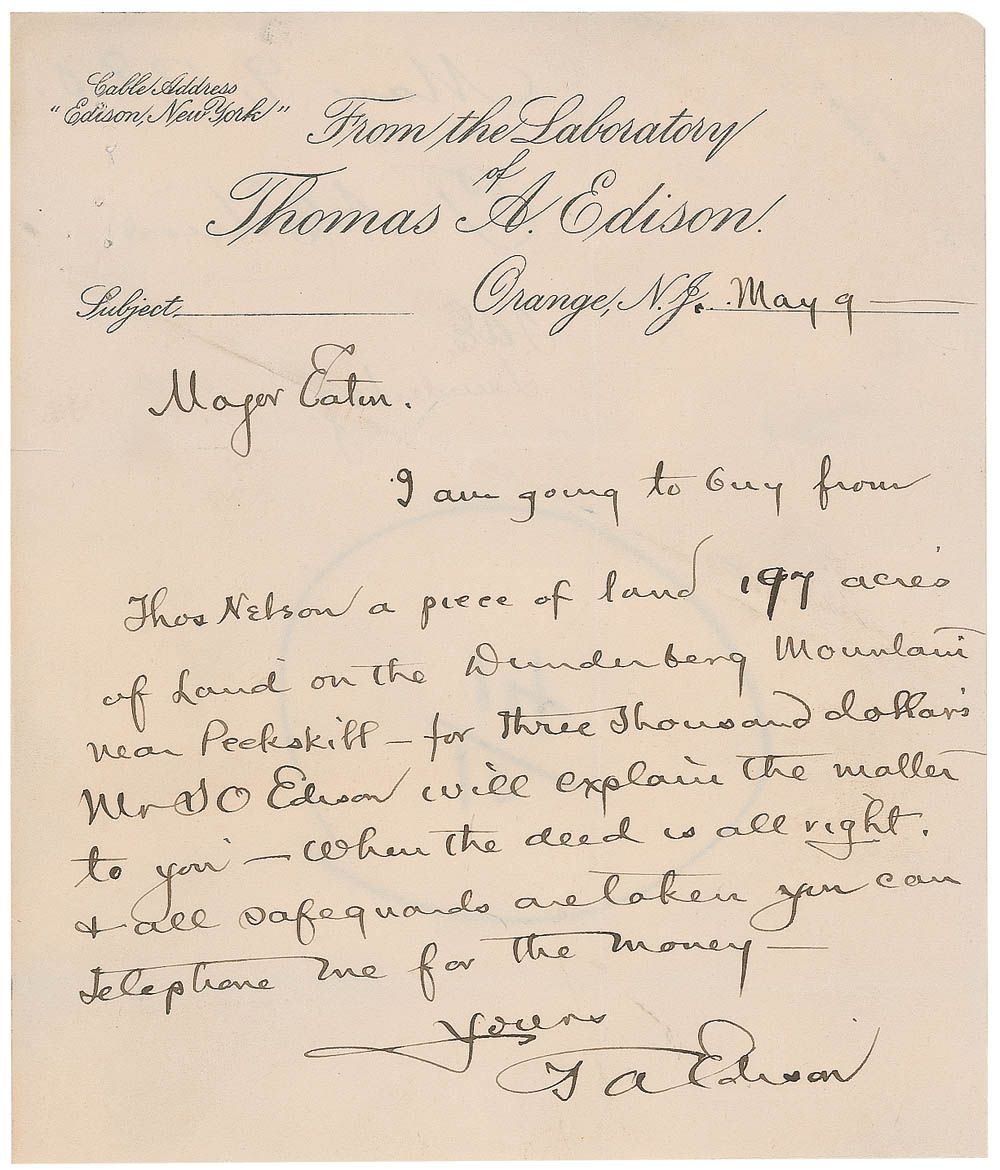 Cable Address
"Edison, New York"
From the Laboratory
of
Thomas A. Edison.
Subject
Orange, N.J. May 9
Major Eaton.
I am going to buy from
Thos Nelson a piece of land 197 acres
of Land on the Dunderberg Mountain
near Peekskill — for three Thousand dollars
Mr S O Edison will explain the matter
to you — When the deed is all right.
& all safeguards are taken you can
Telephone me for the money —
Yours
T A Edison